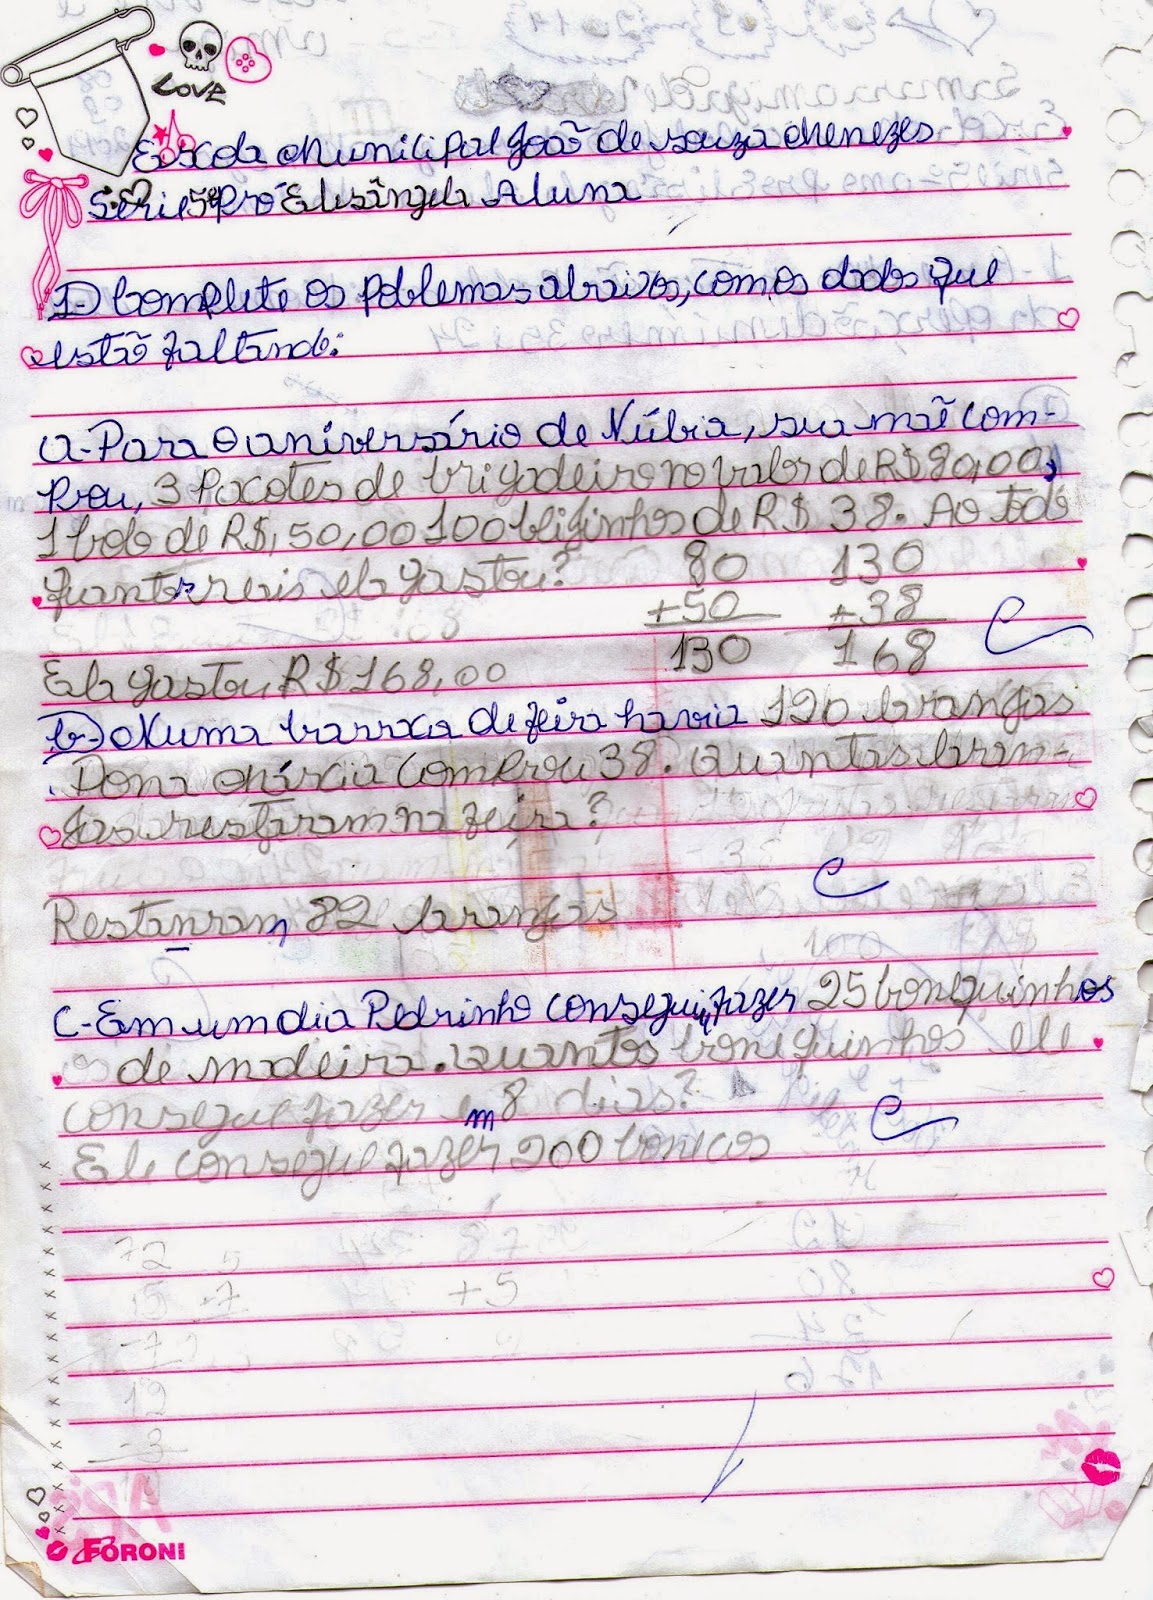 LOVE
Escola Municipal João de souza Menezes
Série 5º Pró Elisângela Aluna
1-) Complete os poblemas abaixos, com os dados que
estão faltando:
a-Para o aniversário de Núbia, sua mãe com-
prou, 3 Pacotes de brigadeiro no valor de R$ 80,00,
1 bolo de R$, 50,00 100 bliginhos de R$ 38. Ao todo
quantos reais ela gastou?
80
+50
130
130
+38
168
Ela gastou R$ 168,00
b-) Numa barraca de feira havia 120 laranjas
Dona Márcia comprou 38. Quantas laran-
jas restaram na feira?
Restanram 82 laranjas
C-Em um dia Pedrinho conseguiu fazer 25 bonequinhos
de madeira. Quantos bonequinhos ele
consegue fazer em 8 dias?
Ele consegue fazer 200 bonecos
FORONI